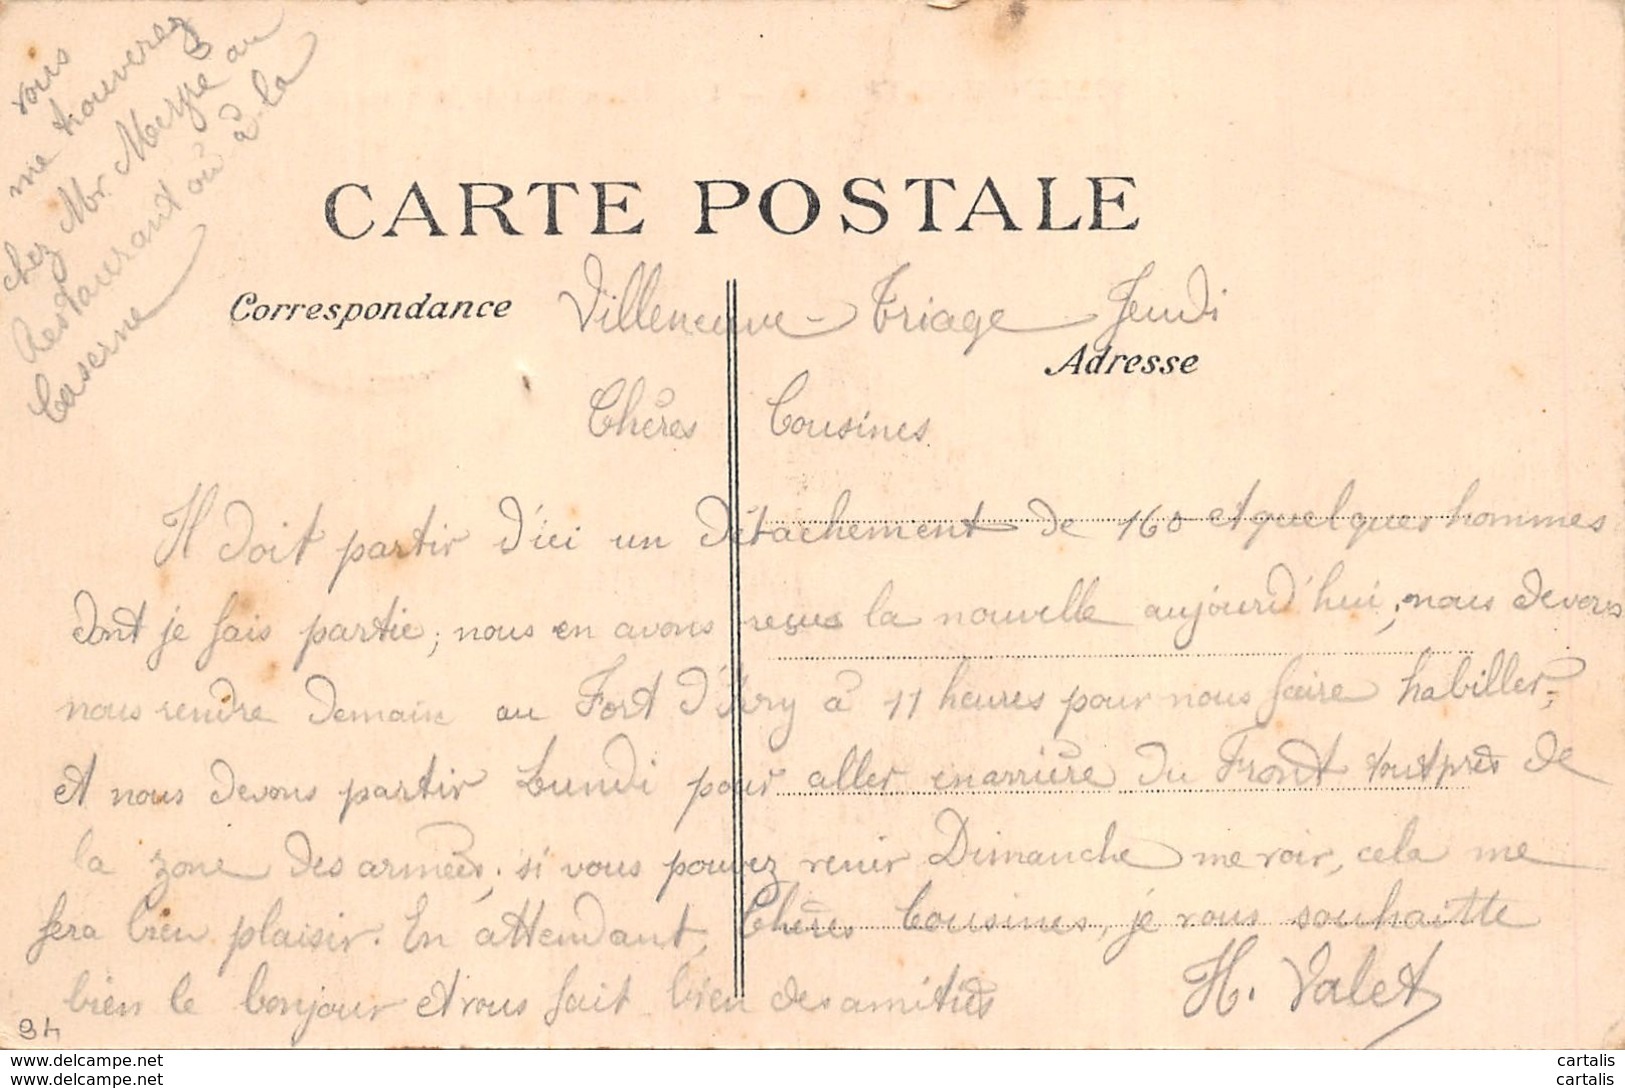 vous
me trouverez
chez Mr. Meyre au
Restaurant où à la
Caserne
CARTE POSTALE
Correspondance
Villeneuve-Triage Jeudi
Adresse
Chères Cousines
Il doit partir d'ici un détachement de 160 et quelques hommes
dont je fais partie; nous en avons reçus la nouvelle aujourd'hui; nous devons
nous rendre demain au Fort d'Ivry à 11 heures pour nous faire habiller;
et nous devons partir Lundi pour aller en arrière du Front tout près de
la zone des armées; si vous pouvez venir Dimanche me voir, cela me
fera bien plaisir. En attendant, Chères Cousines, je vous souhaitte
bien le bonjour et vous fait bien des amitiés H. Valet
94
www.delcampe.net cartalis
www.delcampe.net cartalis